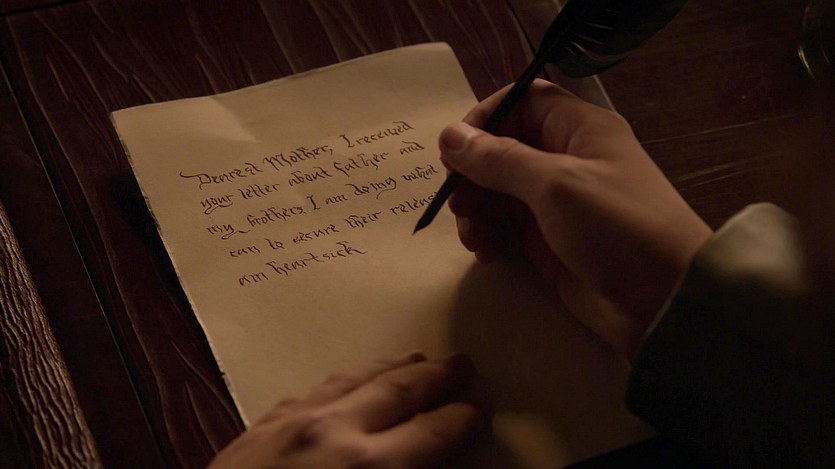 Dearest Mother, I received
your letter about father and
my brothers. I am doing what I
can to secure their release
am heartsick